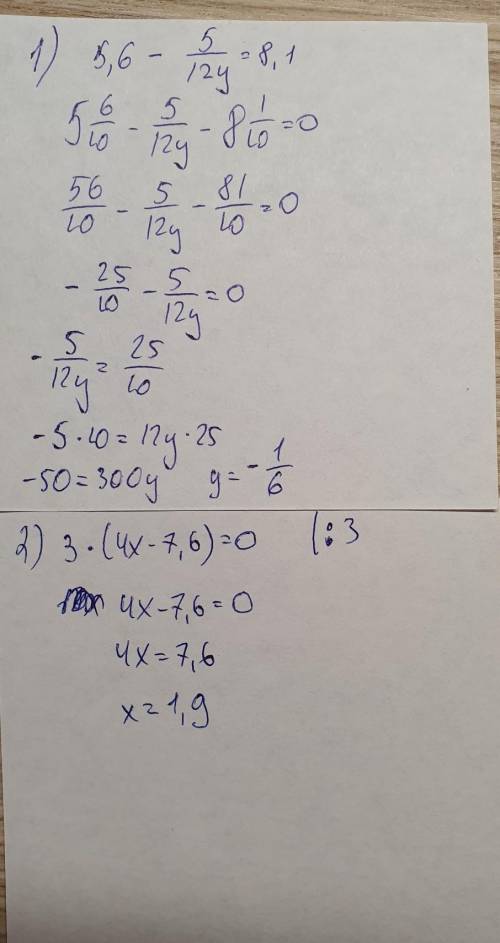 1) 5,6 - 5/12y = 8,1
5 6/10 - 5/12y - 8 1/10 = 0
56/10 - 5/12y - 81/10 = 0
- 25/10 - 5/12y = 0
- 5/12y = 25/10
-5·10 = 12y·25
-50 = 300y y = - 1/6
2) 3·(4x-7,6)=0 |:3
4x-7,6=0
4x=7,6
x=1,9